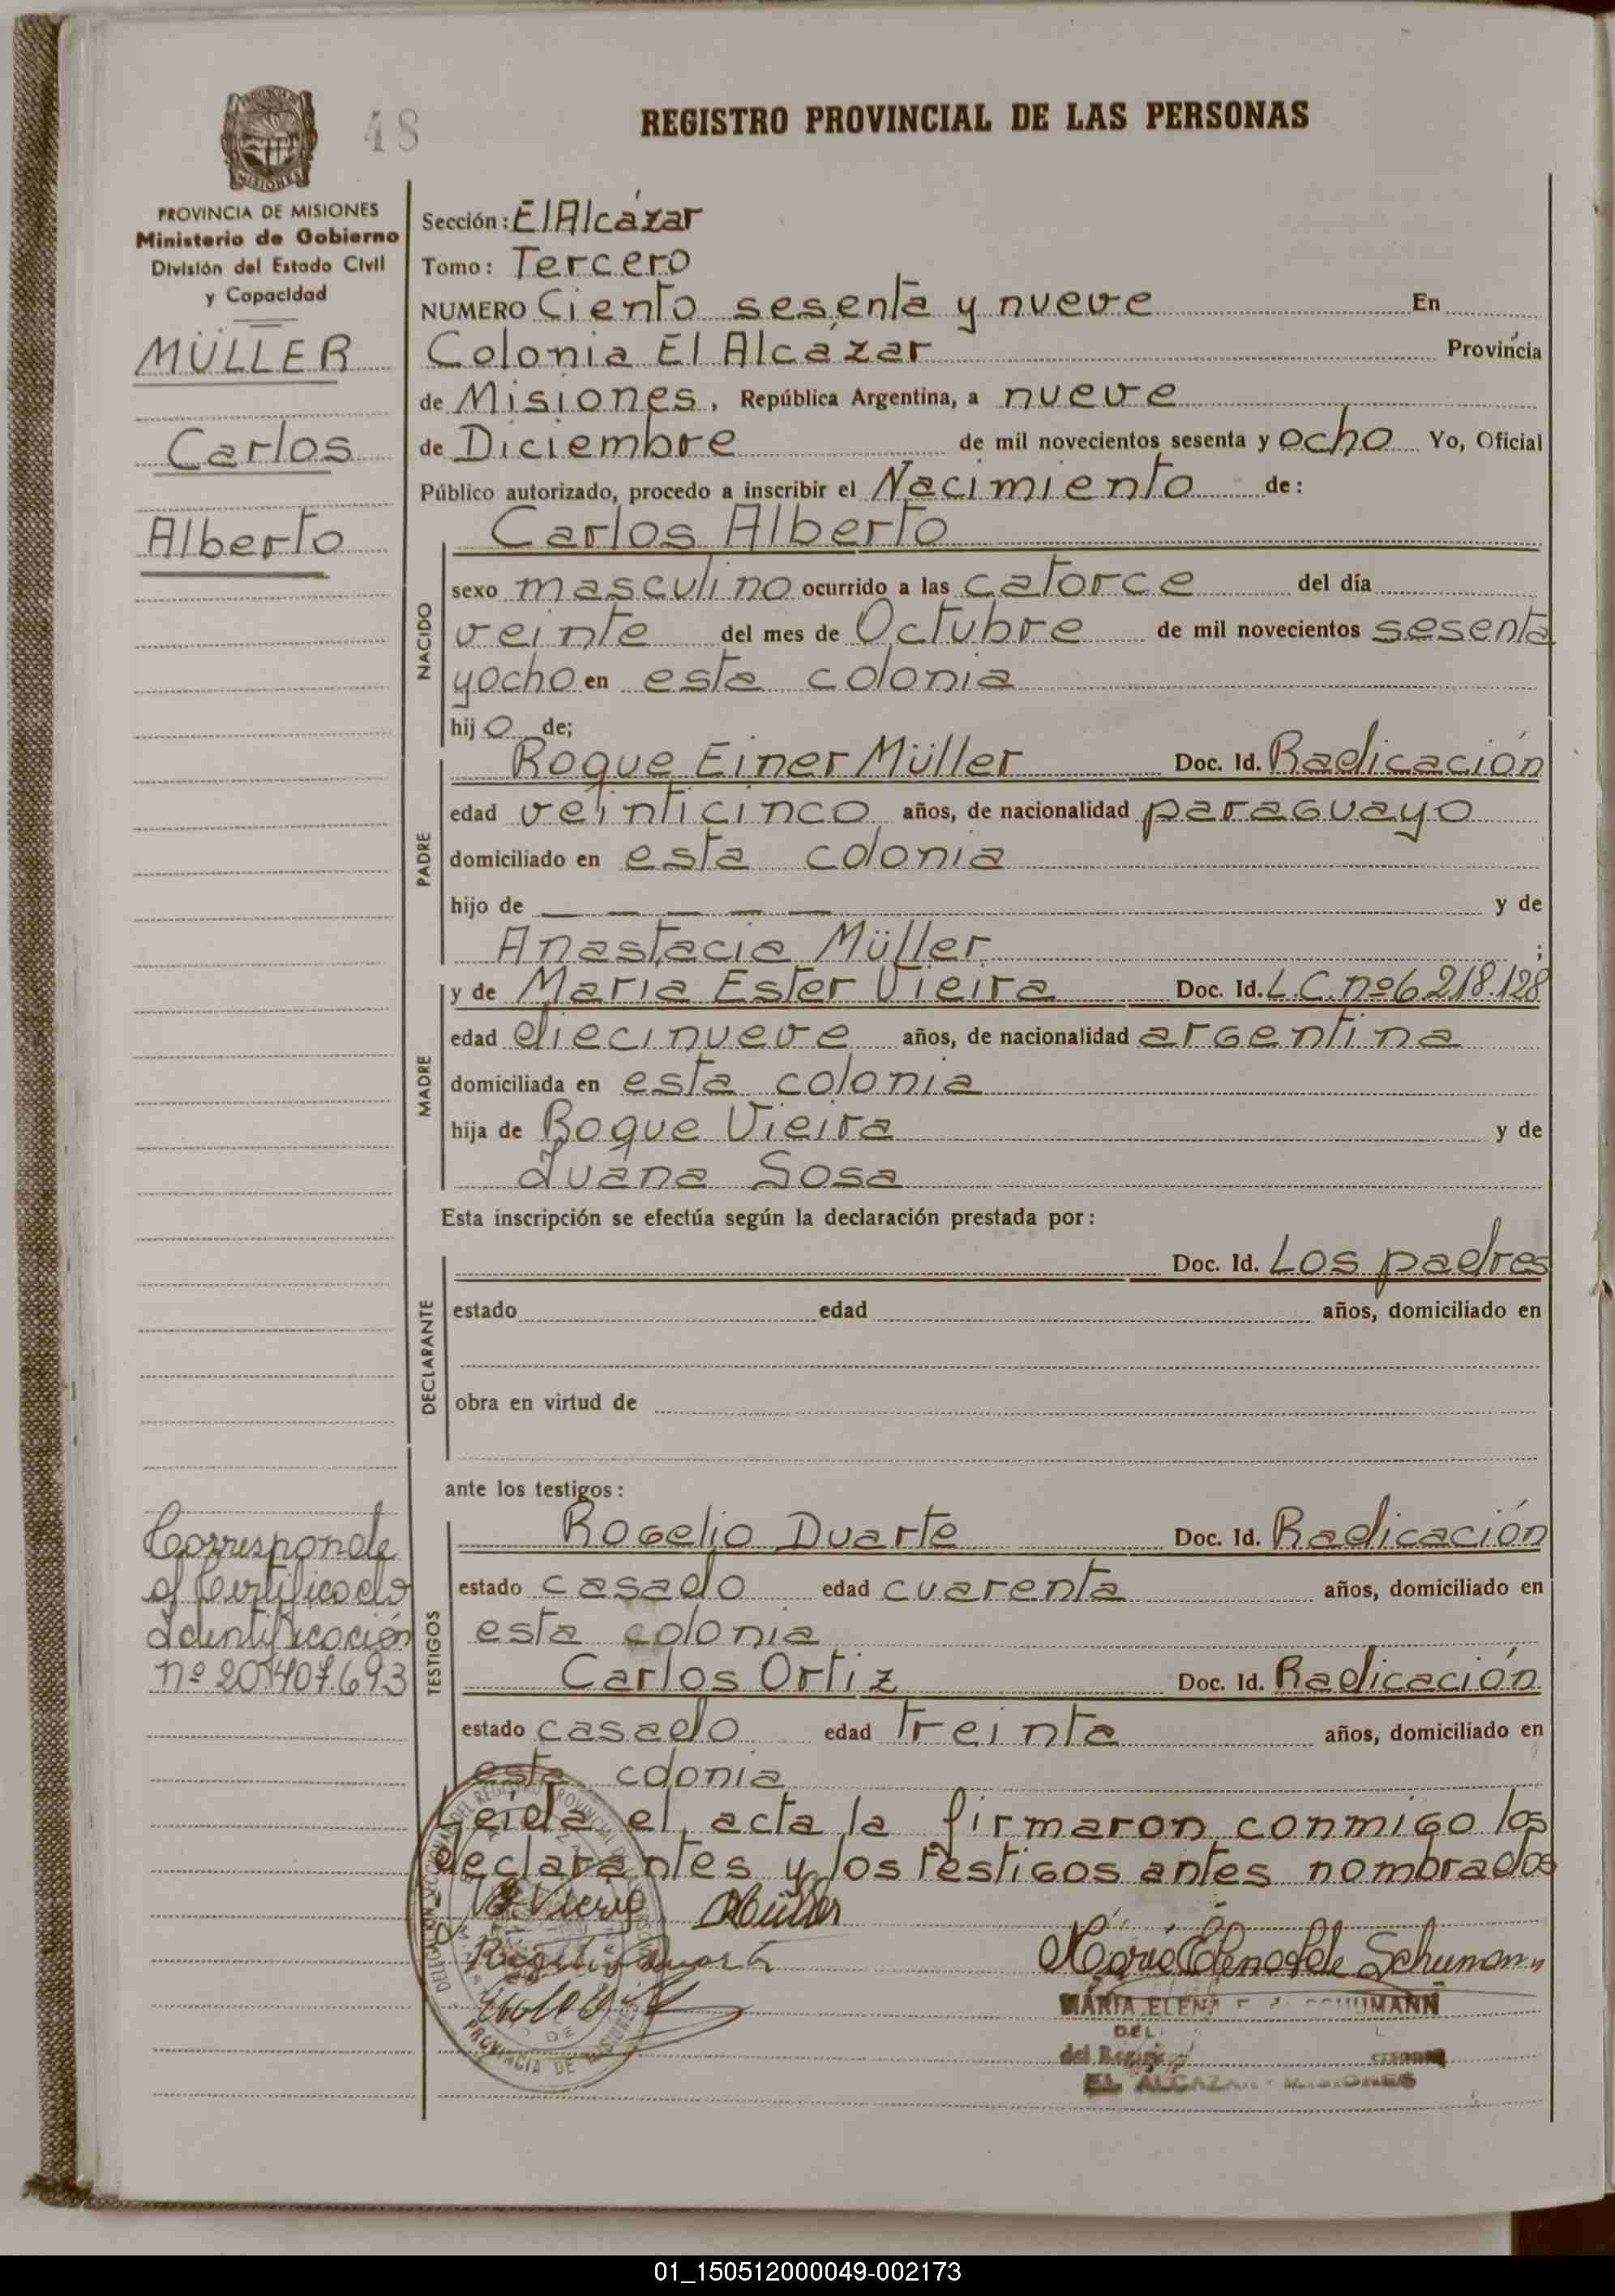 48
REGISTRO PROVINCIAL DE LAS PERSONAS
MISIONES
PROVINCIA DE MISIONES
Ministerio de Gobierno
División del Estado Civil
y Capacidad
MÜLLER
Carlos
Alberto
Sección: El Alcázar
Tomo: Tercero
NUMERO Ciento sesenta y nueve En
Colonia El Alcázar Provincia
de Misiones, República Argentina, a nueve
de Diciembre de mil novecientos sesenta y ocho Yo, Oficial
Público autorizado, procedo a inscribir el Nacimiento de:
Carlos Alberto
NACIDO
sexo masculino ocurrido a las catorce del día
veinte del mes de Octubre de mil novecientos sesenta
y ocho en esta colonia
hijo de;
PADRE
Roque Einer Müller Doc. Id. Radicación
edad veinticinco años, de nacionalidad paraguayo
domiciliado en esta colonia
hijo de — — — — — y de
Anastacia Müller ;
MADRE
y de Maria Ester Vieira Doc. Id. L.C. nº 6.218.128
edad diecinueve años, de nacionalidad argentina
domiciliada en esta colonia
hija de Roque Vieira y de
Juana Sosa
Esta inscripción se efectúa según la declaración prestada por:
DECLARANTE
Doc. Id. Los padres
estado edad años, domiciliado en
obra en virtud de
ante los testigos:
TESTIGOS
Rogelio Duarte Doc. Id. Radicación
estado casado edad cuarenta años, domiciliado en
esta colonia
Carlos Ortiz Doc. Id. Radicación
estado casado edad treinta años, domiciliado en
esta colonia
Corresponde
al Certificado
Identificación
nº 20.407.693
Leida el acta la firmaron conmigo los
declarantes y los testigos antes nombrados
Müller
Rogelio Duarte
María Elena F de Schumann
MARIA ELENA F SCHUMANN
DEL
del Registro
EL ALCAZAR - MISIONES
PROVINCIA DE MISIONES
01_150512000049-002173